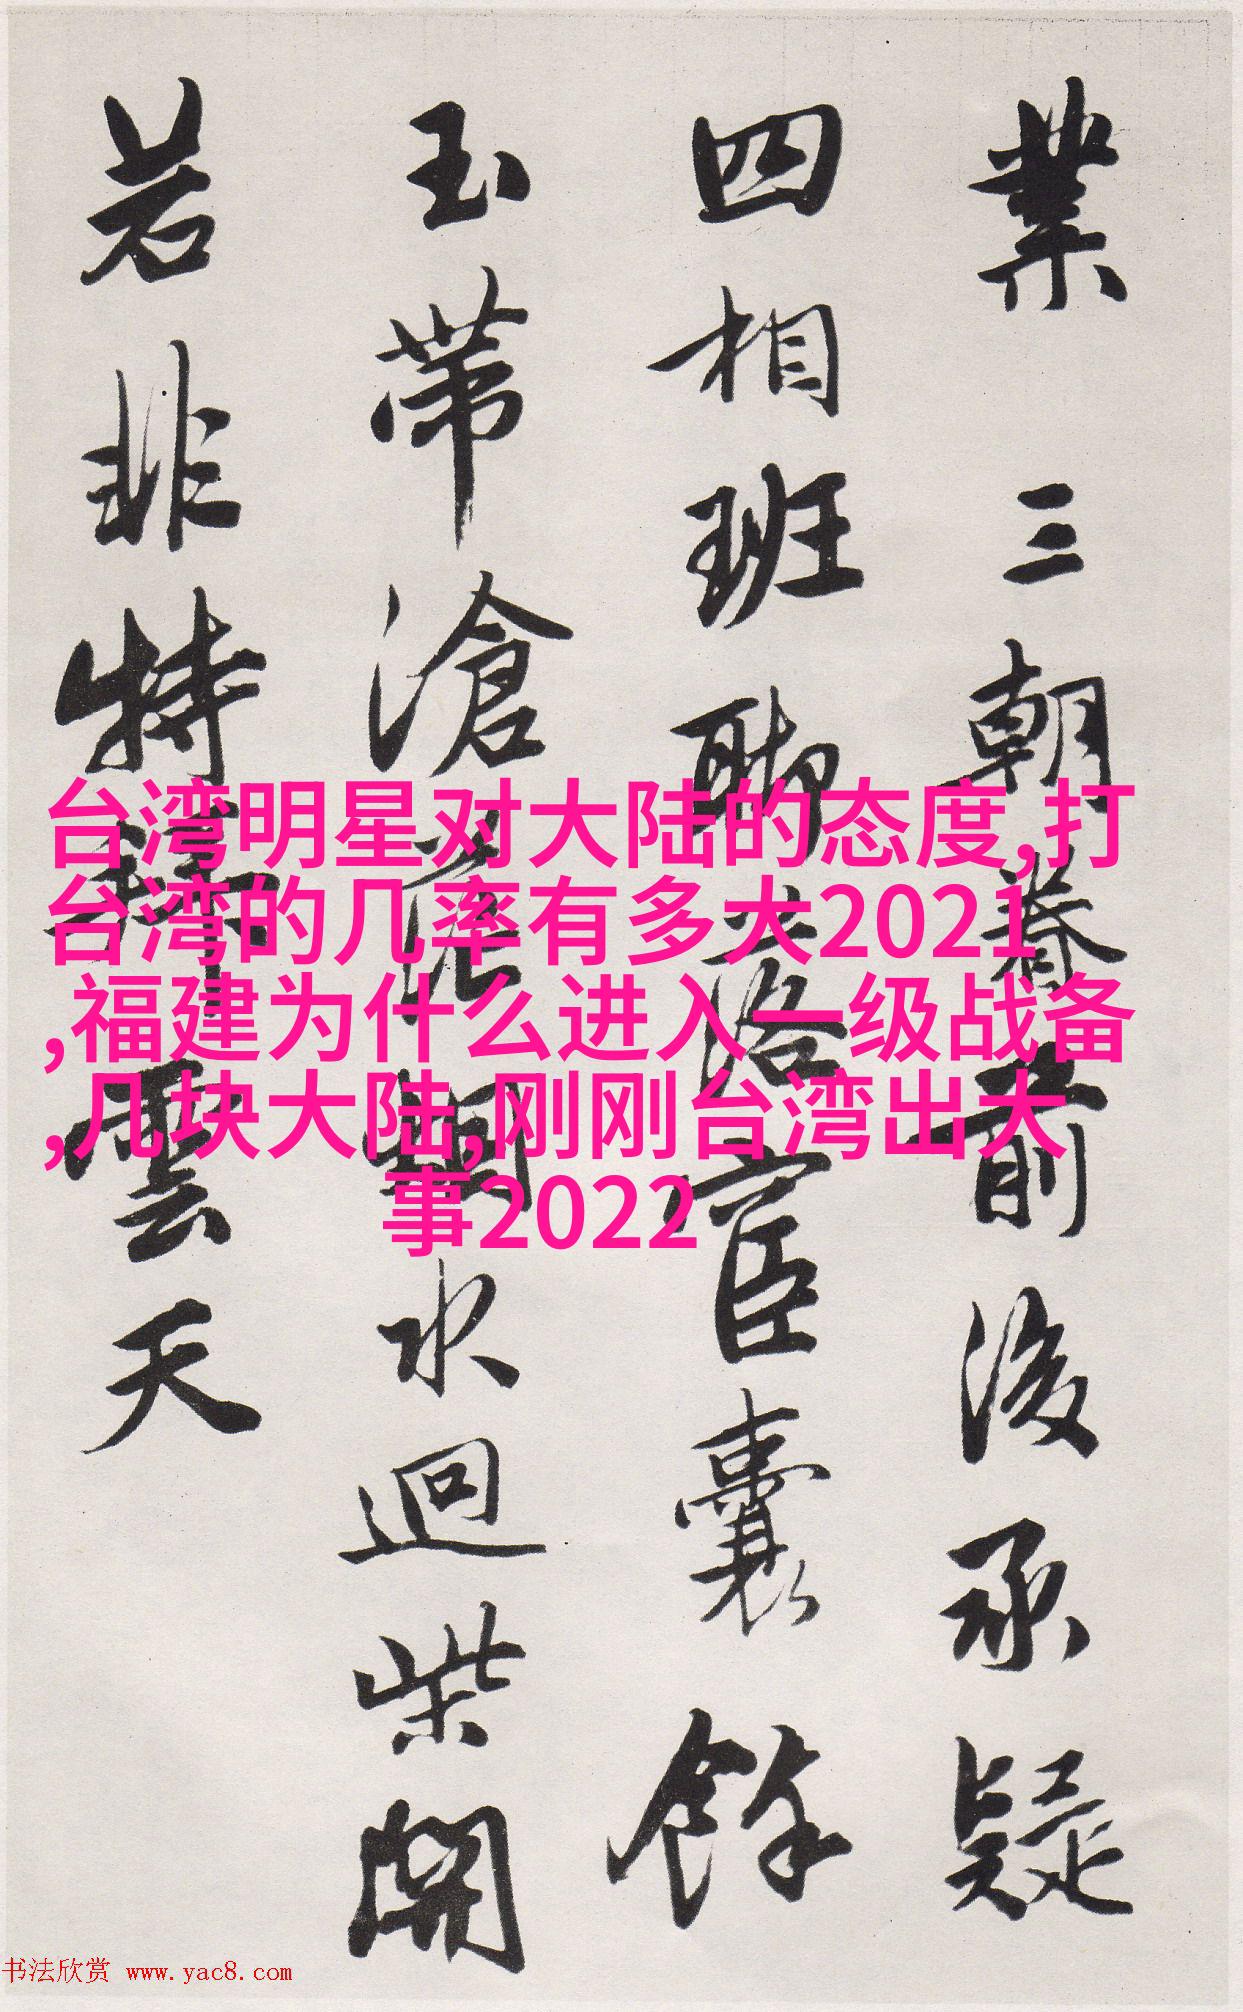 業 三朝眷前後承疑
四相班聯落宦囊餘
玉帶滄茫湖水迴柴開
若非特雲天
台湾明星对大陆的态度,打
台湾的几率有多大2021
,福建为什么进入一级战备
,几块大陆,刚刚台湾出大
事2022
书法欣赏 www.yac8.com